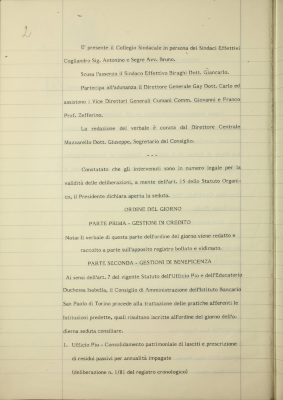 2
E' presente il Collegio Sindacale in persona dei Sindaci Effettivi
Cugliandro Sig. Antonino e Segre Avv. Bruno.
Scusa l'assenza il Sindaco Effettivo Biraghi Dott. Giancarlo.
Partecipa all'adunanza il Direttore Generale Gay Dott. Carlo ed
assistono i Vice Direttori Generali Cumani Comm. Giovanni e Franco
Prof. Zefferino.
La redazione del verbale è curata dal Direttore Centrale
Mazzarello Dott. Giuseppe, Segretario del Consiglio.
---
Constatato che gli intervenuti sono in numero legale per la
validità delle deliberazioni, a mente dell'art. 15 dello Statuto Organi-
co, il Presidente dichiara aperta la seduta.
ORDINE DEL GIORNO
PARTE PRIMA - GESTIONI DI CREDITO
Nota: il verbale di questa parte dell'ordine del giorno viene redatto e
raccolto a parte sull'apposito registro bollato e vidimato.
PARTE SECONDA - GESTIONI DI BENEFICENZA
Ai sensi dell'art. 7 del vigente Statuto dell'Ufficio Pio e dell'Educatorio
Duchessa Isabella, il Consiglio di Amministrazione dell'Istituto Bancario
San Paolo di Torino procede alla trattazione delle pratiche afferenti le
Istituzioni predette, quali risultano iscritte all'ordine del giorno dell'o-
dierna seduta consiliare.
1. Ufficio Pio - Consolidamento patrimoniale di lasciti e prescrizione
di residui passivi per annualità impagate
(deliberazione n. 1/81 del registro cronologico)